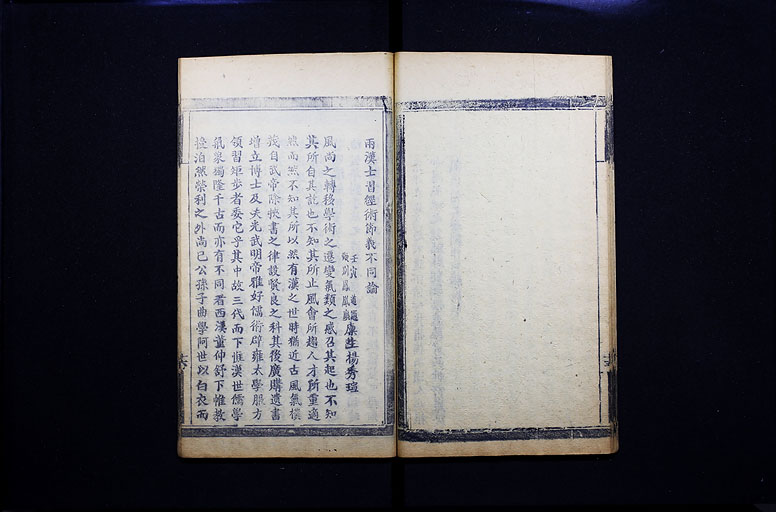 兩漢士習經術節義不同論
壬寅 廩生楊秀瑄
風尚之轉移學術之遷變氣類之感召其起也不知
其所自其訖也不知其所止風會所趨人才所重適
然而然不知其所以然有漢之世時猶近古風氣樸
茂自武帝除挾書之律設賢良之科其後廣購遺書
增立博士及夫光武明帝雅好儒術辟雍太學服方
領習矩步者委它乎其中故三代而下惟漢世儒學
氣象獨隆千古而亦有不同者西漢董仲舒下帷教
授泊然榮利之外尚已公孫子曲學阿世以白衣而